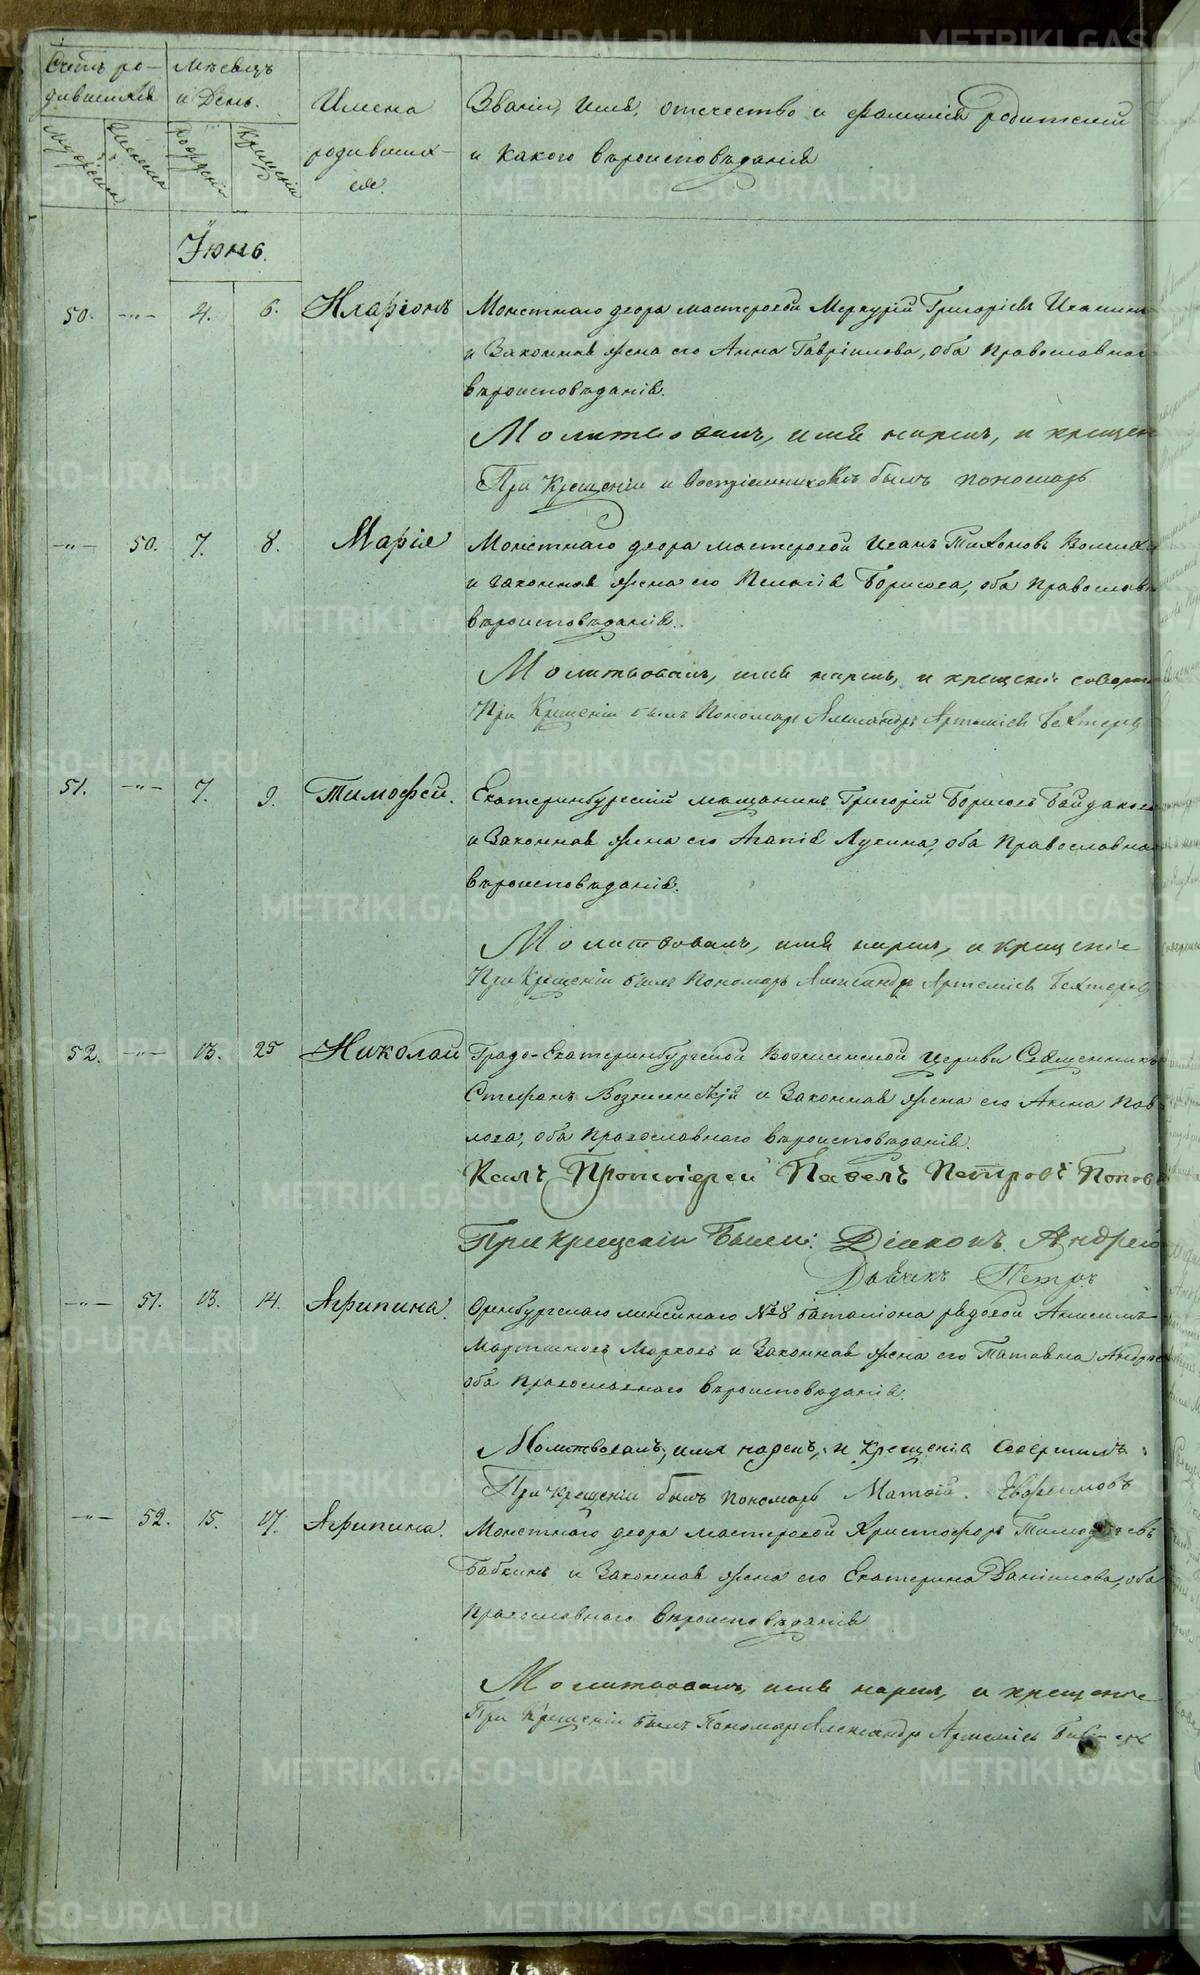 Счетъ ро-
дившихся
Мѣсяцъ
и День.
Имена
родивших-
ся.
Званіе, имя, отчество и фамилія родителей
и какого вѣроисповѣданія
Мужеска
Женска
Рожденія
Крещенія
Іюнь.
50. -"- 4. 6. Иларіонъ Монетнаго двора мастеровой Меркурій Григорьевъ
и законная жена его Анна Гавріилова, оба православнаго
вѣроисповѣданія.
Молитвовалъ, имя нарекъ, и крещен
При Крещеніи и воспріемникомъ былъ пономарь
-"- 50. 7. 8. Марія Монетнаго двора мастеровой Иванъ Тихоновъ
и законная жена его Пелагія Борисова, оба православн
вѣроисповѣданія.
Молитвовалъ, имя нарекъ, и крещеніе соверши
При Крещеніи былъ Пономарь Александръ Артеміевъ Бехтерев
51. -"- 7. 9. Тимофей. Екатеринбургскій мѣщанинъ Григорій Борисовъ Байдаков
и законная жена его Агапія Лукина, оба православна
вѣроисповѣданія.
Молитвовалъ, имя нарекъ, и крещеніе
При Крещеніи былъ Пономарь Александръ Артеміевъ Бехтерев
52. -"- 13. 25 Николай Градо-Екатеринбургской Вознесенской церкви Священникъ
Стефанъ Вознесенскій и законная жена его Анна Пав-
лова, оба православнаго вѣроисповѣданія.
Протоіерей Павелъ Петровъ Поповъ
При крещеніи были: Діаконъ Андрей
Дьячекъ Петръ
-"- 51. 13. 14. Агрипина. Оренбургскаго линейнаго №8 баталіона рядовой Анисимъ
Мартиновъ Марковъ и законная жена его Татьяна Андре
оба православнаго вѣроисповѣданія.
Молитвовалъ, имя нарекъ, и Крещеніе совершилъ:
При крещеніи былъ пономарь Матѳій Евфимовъ
-"- 52. 15. 17. Агрипина. Монетнаго двора мастеровой Христофоръ Тимофѣевъ
Бабкинъ и законная жена его Екатерина Даніилова, оба
православнаго вѣроисповѣданія
Молитвовалъ, имя нарекъ, и крещеніе
При Крещеніи былъ Пономарь Александръ Артеміевъ
METRIKI.GASO-URAL.RU